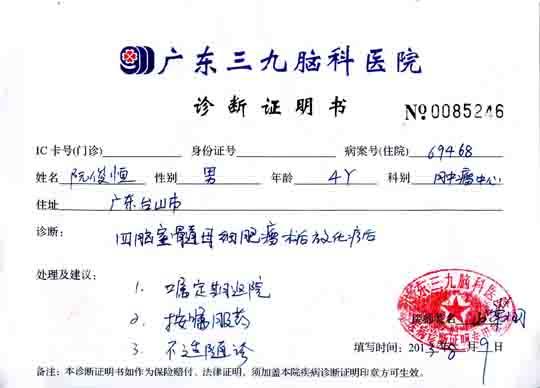 广东三九脑科医院
诊断证明书 № 0085246
IC卡号(门诊) 身份证号 病案号(住院) 69468
姓名 阮俊恒 性别 男 年龄 4Y 科别 肿瘤中心
住址 广东台山市
诊断: 四脑室髓母细胞瘤术后放化疗后
处理及建议:
1. 嘱定期返院
2. 按嘱服药
3. 不适随诊
东三九脑科医
填写时间: 2013年8月9日
备注: 本诊断证明书如作为保险赔付、法律证明,须加盖本院疾病诊断证明印章方可生效。